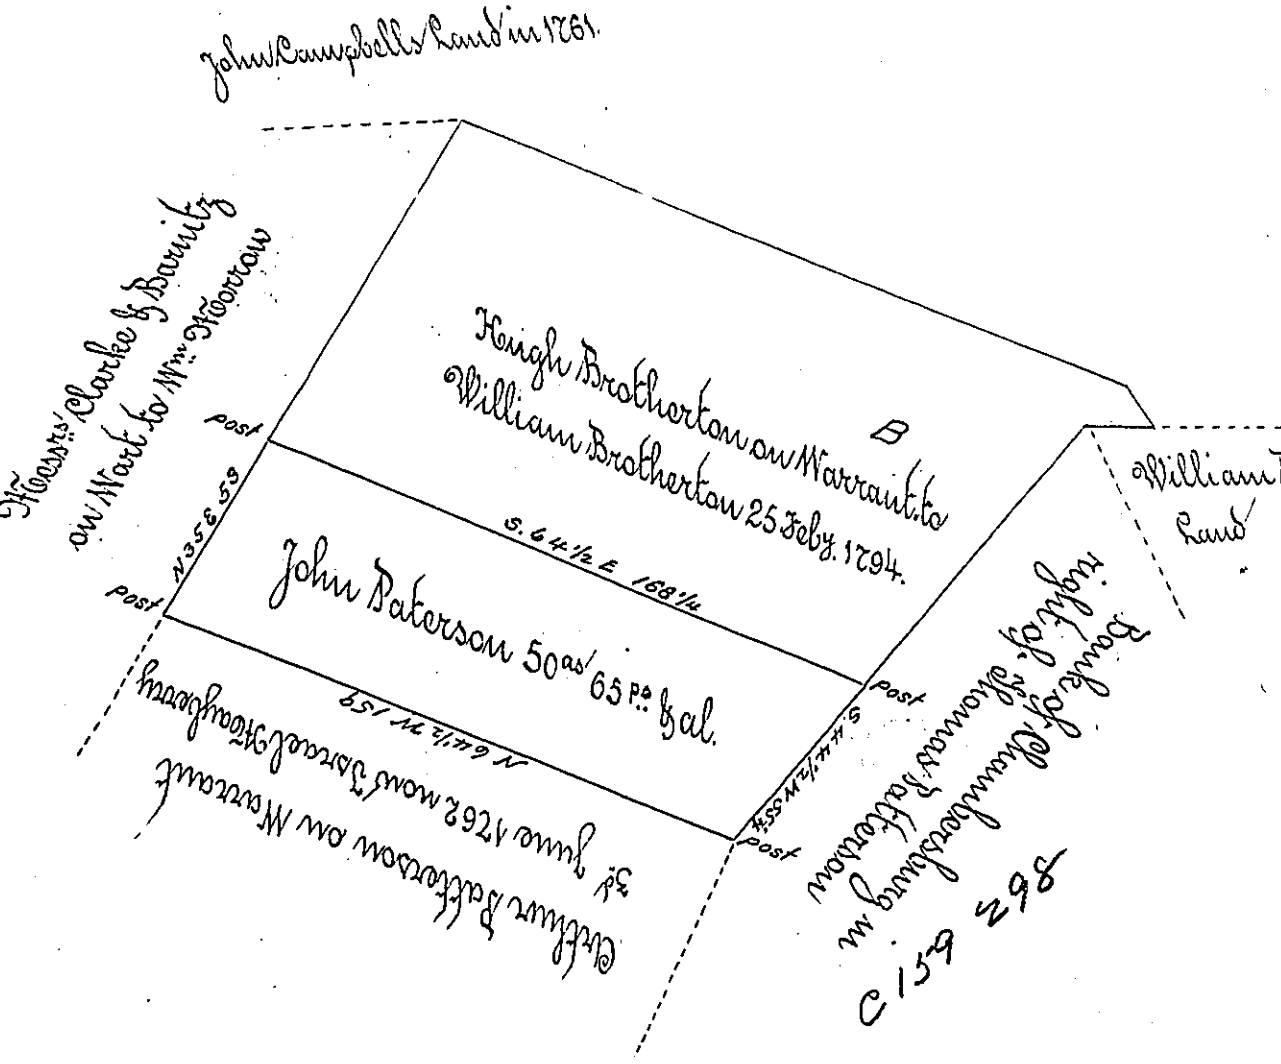 John Campbells Land in 1761.
Messrs Clarke & Barnitz
on Wart to Wm Morrow
Hugh Brotherton on Warrant to
William Brotherton 25 Feby. 1794.
B
William
Land
post
N 35 E 53
post
S. 64 1/2 E 168 1/4
John Paterson 50 as 65 ps & al.
N 64 1/2 W 159
post
S. 44 1/2 W 55
post
Arthur Patterson on Warrant
3d June 1762 now Israel Mayberry
Bank of Chambersburg in
right of Thomas Patterson
C 159 298